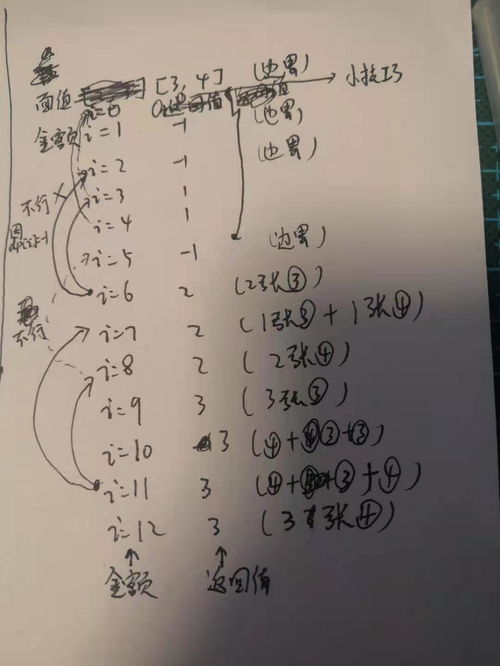 面值 [3, 4] (边界) 小技巧
金额 i=0 0 返回值
i=1 -1 (边界)
i=2 -1 (边界)
i=3 1
不行 i=4 1
i=5 -1 (边界)
i=6 2 (2张③)
不行 i=7 2 (1张③+1张④)
i=8 2 (2张④)
i=9 3 (3张③)
i=10 3 (④+③+③)
i=11 3 (④+③+④)
i=12 3 (3张④)
金额 返回值